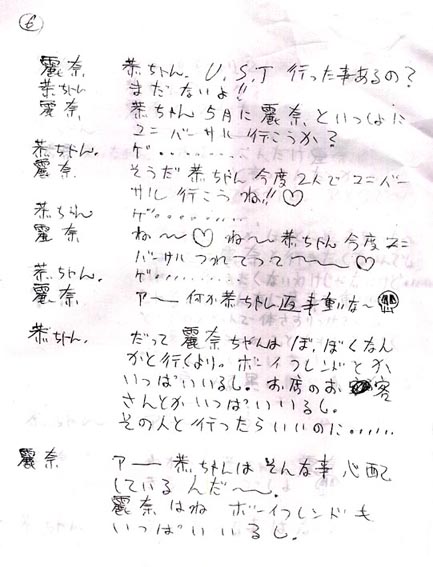 6
麗奈 恭ちゃん. U.S.J 行った事あるの?
恭ちゃん まだないよ!!
麗奈 恭ちゃん 5月に麗奈といっしょに
ユニバーサル行こうか?
恭ちゃん. ゲ.........
麗奈 そうだ恭ちゃん今度2人でユニバー
サル行こうね!!♡
恭ちゃん ゲ.........
麗奈 ね〜♡ね〜恭ちゃん今度ユニ
バーサルつれてって〜〜♡
恭ちゃん. ゲ.........
麗奈 アー何か恭ちゃん返事重いな〜
恭ちゃん. だって麗奈ちゃんはぼ,ぼくなん
かと行くより. ボーイフレンドとか
いっぱいいるし. お店のお客
さんとかいっぱいいるし.
その人と行ったらいいのに......
麗奈 アー恭ちゃんはそんな事心配
しているんだ〜.
麗奈はね ボーイフレンドも
いっぱいいるし.